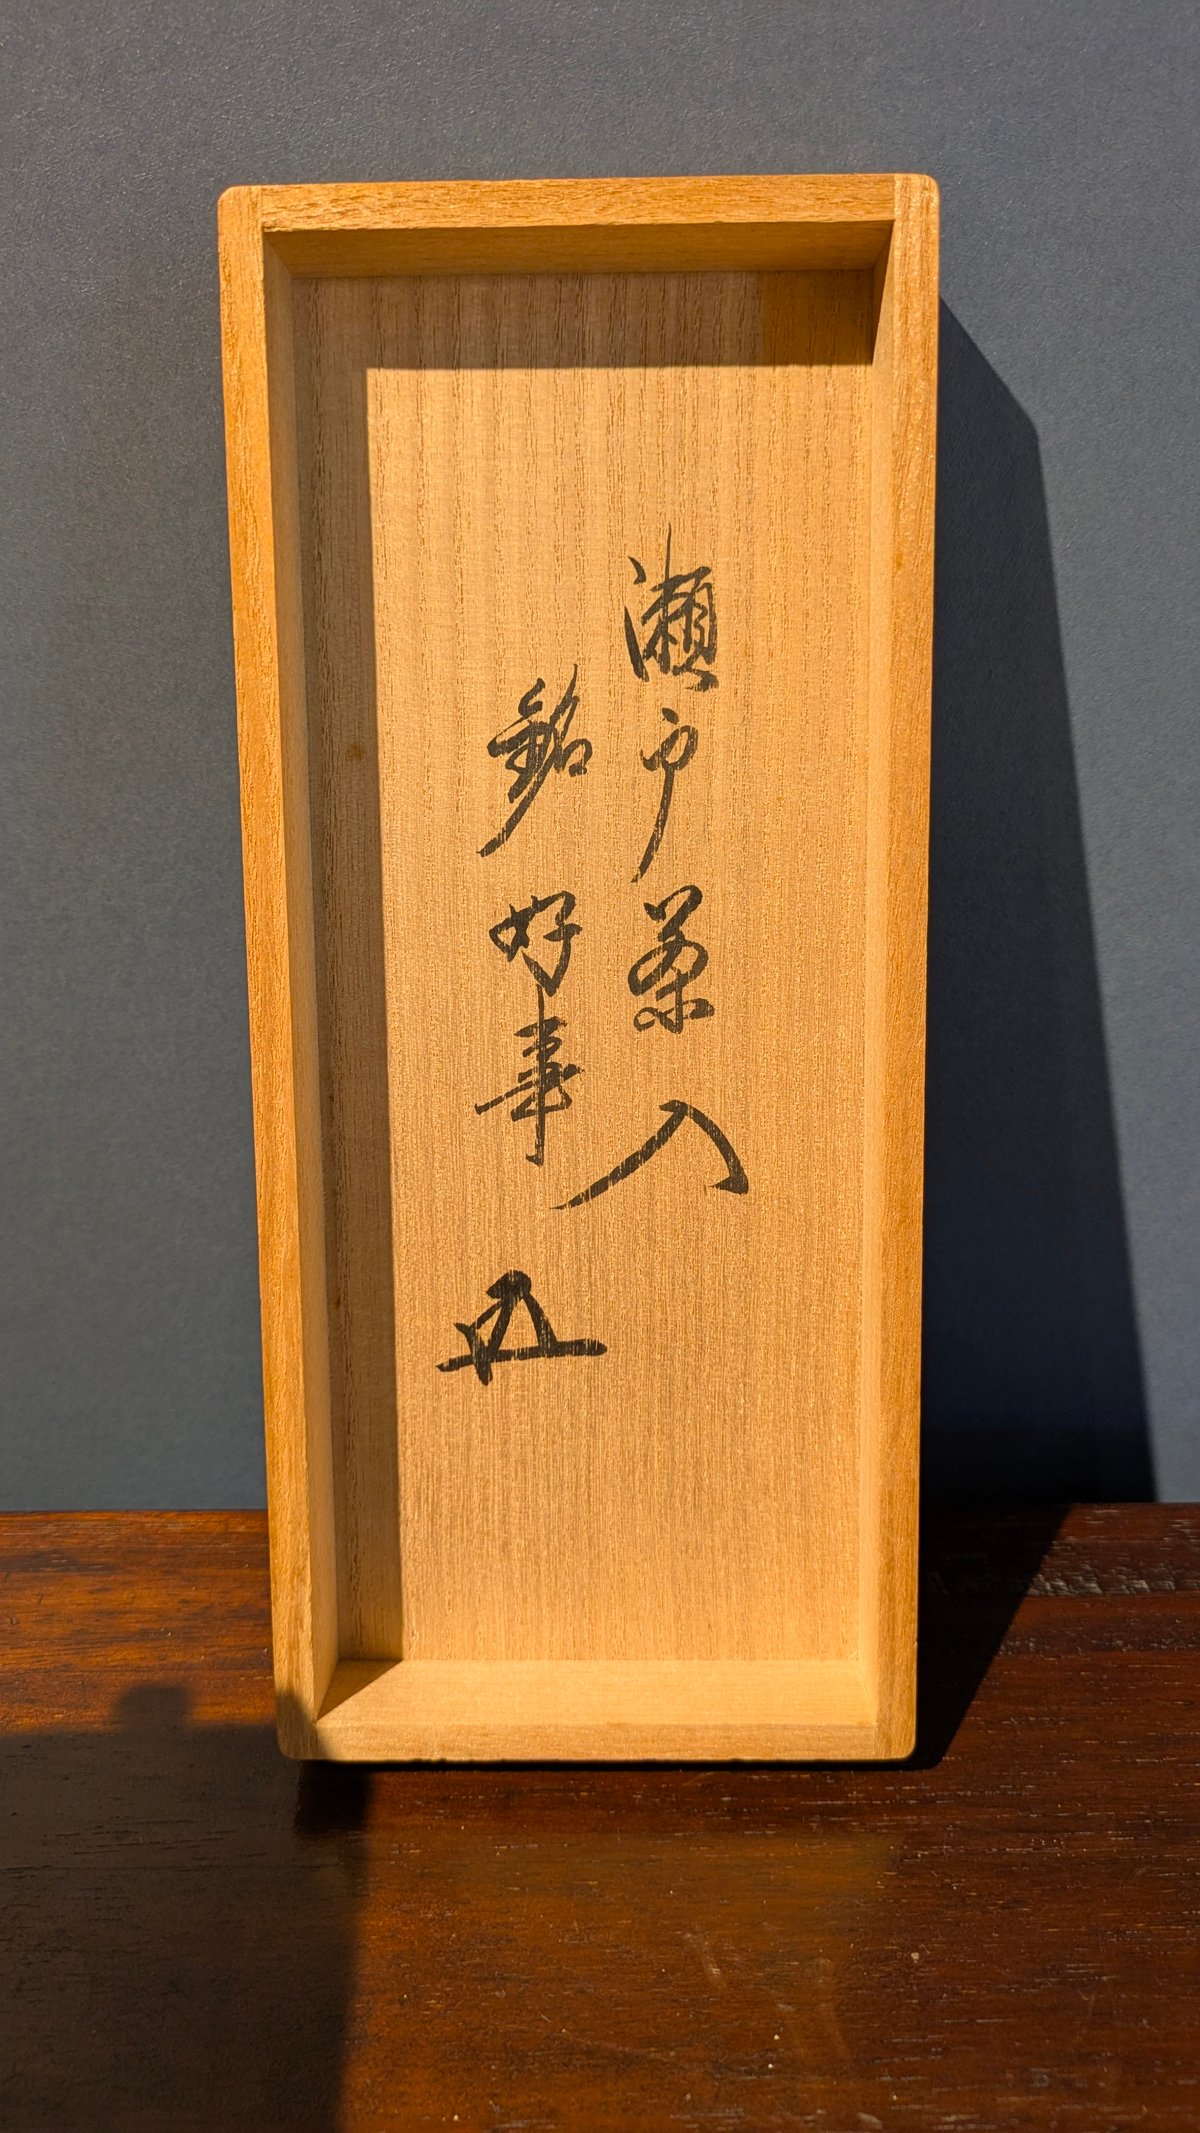 瀬戸茶入
銘 好事